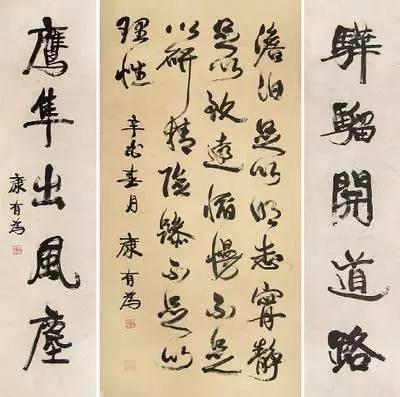 驊騮開道路
澹泊足以明志寧靜
足以致遠慆慢不足
以研精險躁不足以
理性 辛酉春月 康有為
鷹隼出風塵
康有為